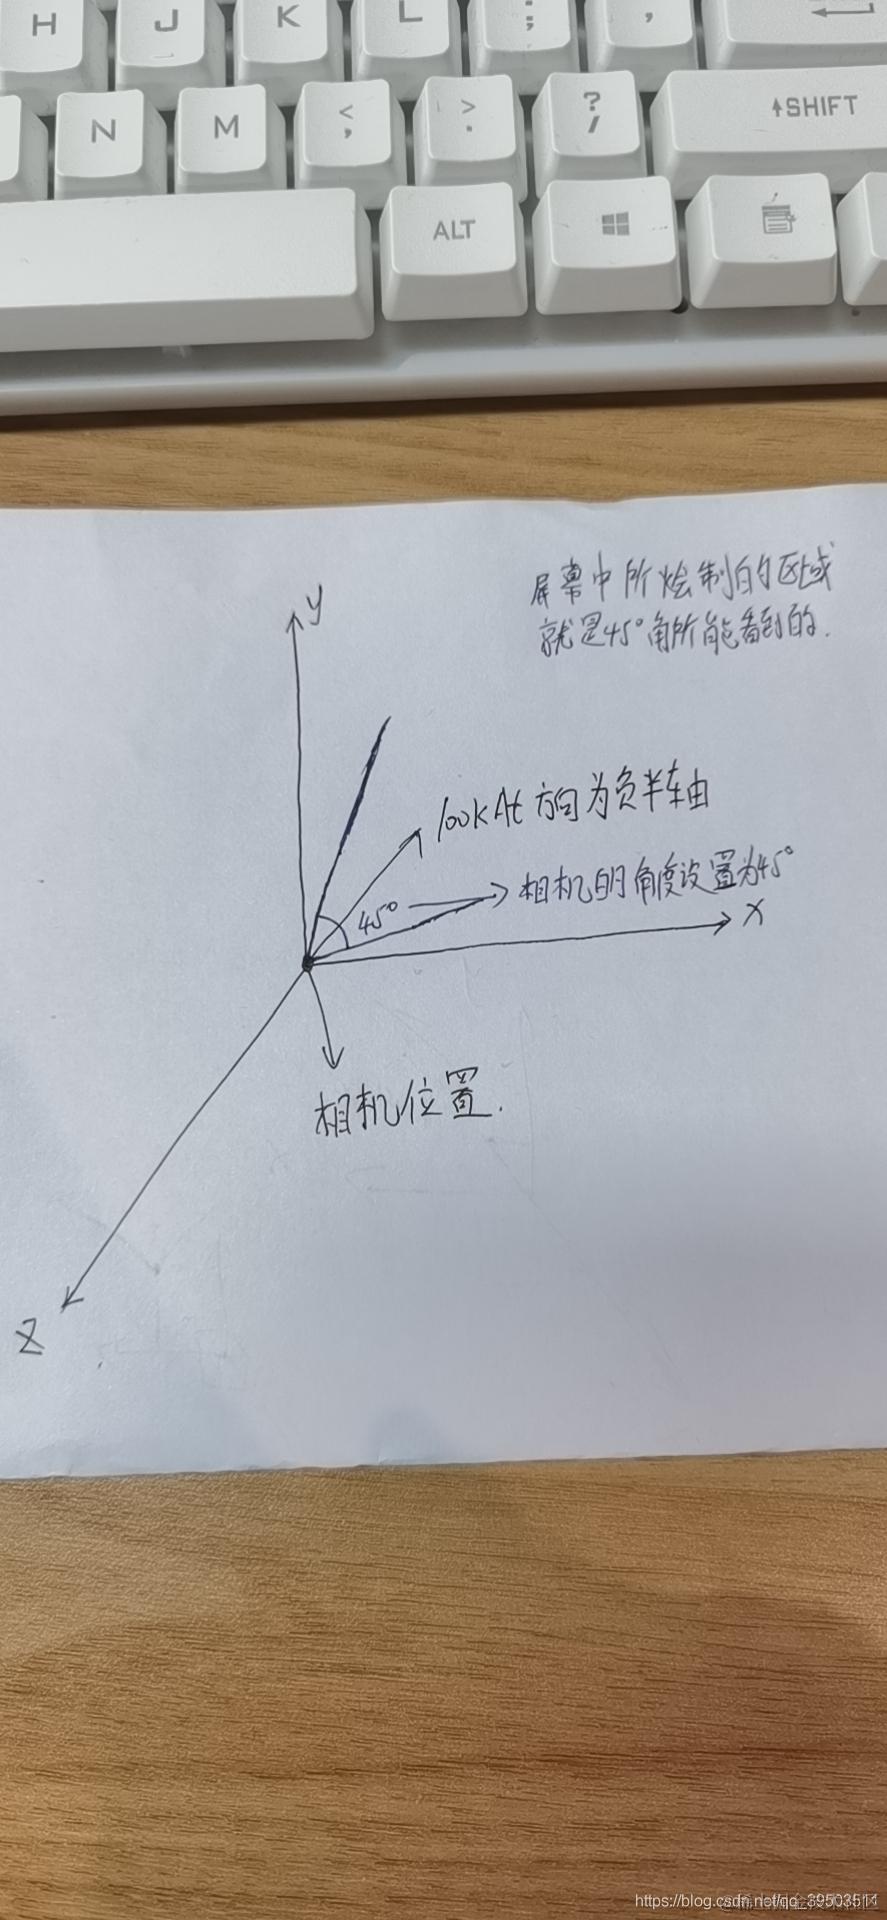 H J K L : ; ,
N M < , > . ? / ↑SHIFT
ALT
屏幕中所绘制的区域
就是45°角所能看到的.
y
lookAt 方向为负半轴
相机的角度设置为45°
45°
x
相机位置.
z
https://blog.csdn.net/qq_39503511